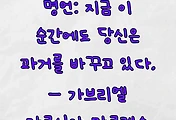 명언: 지금 이
순간에도 당신은
과거를 바꾸고 있다.
– 가브리엘